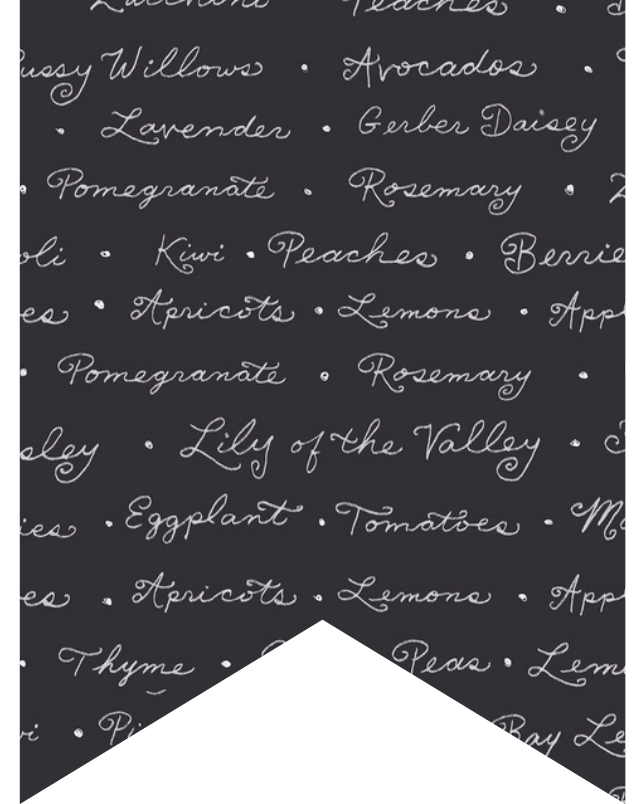 Zucchini · Peaches ·
ussy Willows · Avocados ·
· Lavender · Gerber Daisey
· Pomegranate · Rosemary · Z
oli · Kiwi · Peaches · Berrie
es · Apricots · Lemons · Appl
· Pomegranate · Rosemary ·
sley · Lily of the Valley ·
ies · Eggplant · Tomatoes · Ma
es · Apricots · Lemons · App
· Thyme · Peas · Lem
i · Pi Bay Le